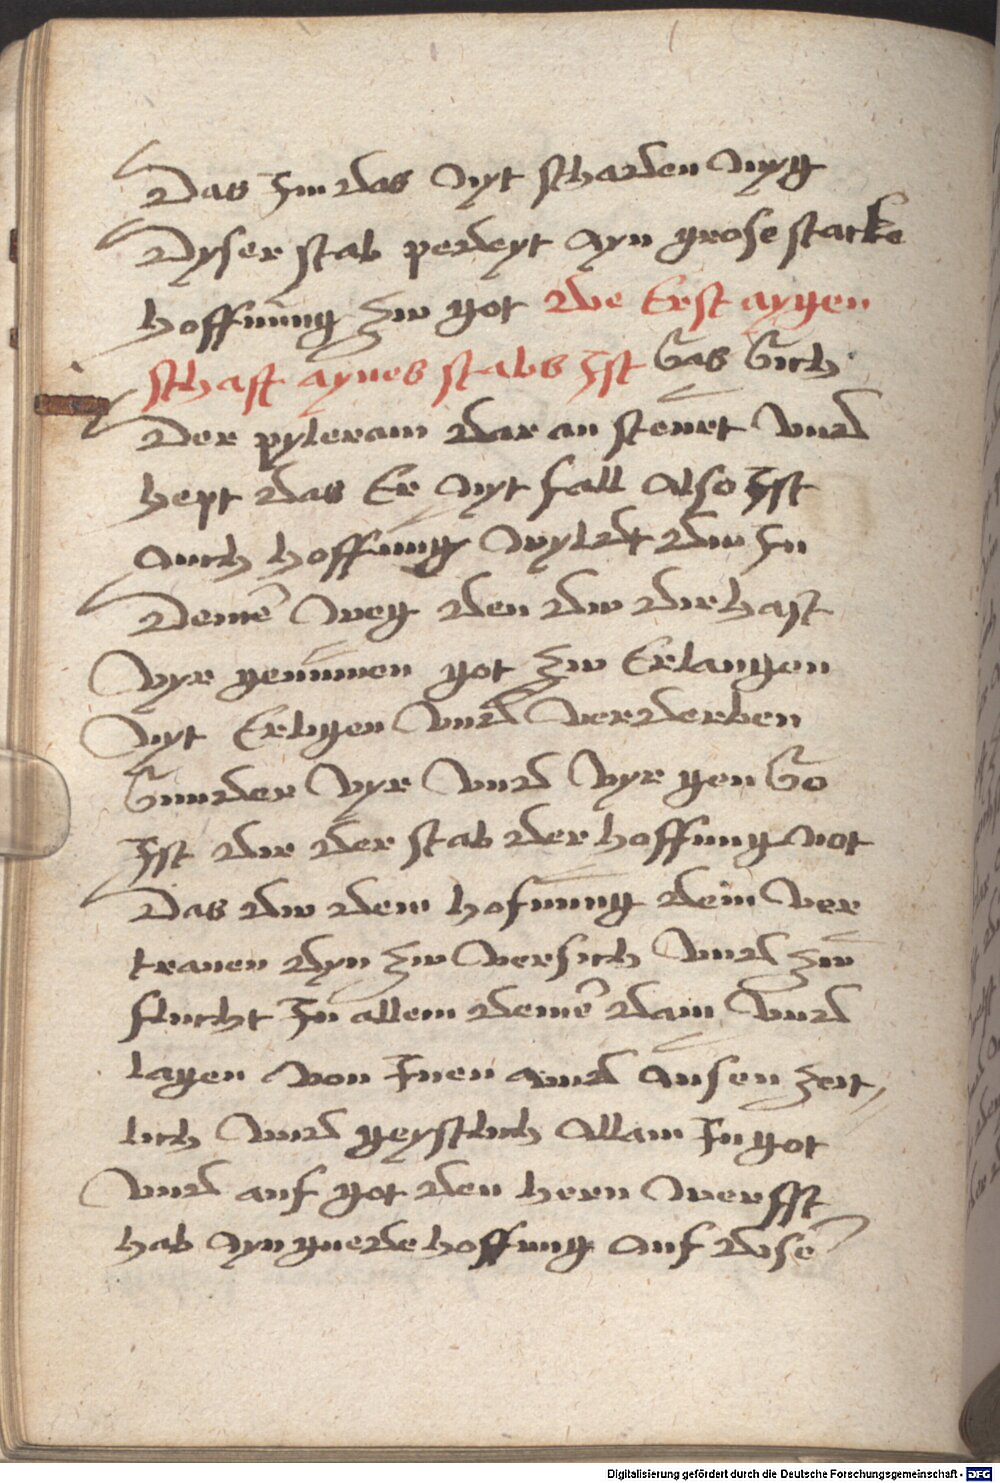 Das Im das nyt schaden myg
Dyser stab pedeyt ayn grose starke
hoffnung zw got die Erst aygen
schaft aynes stabs Ist das sich
Der pyleram dar an steurt vnd
hept das Er nyt fall Also Ist
auch hoffnung wyldt dw In
Deinem weg den dw dir hast
vyr genumen got zw Erlangen
nyt Erligen vnd verderben
sunder vyr vnd vyr gen so
Ist dir der stab der hoffnung not
Das dw dein hofnung dein ver
trauen dyn zw versich vnd zw
flucht In allem deinem dain vnd
lasen von Inen vnd ausen zeit
lich vnd geystlich Allain In got
vnd auf got den hern werffst
hab ayn guede hoffnung auf disen
Digitalisierung gefördert durch die Deutsche Forschungsgemeinschaft - DFG